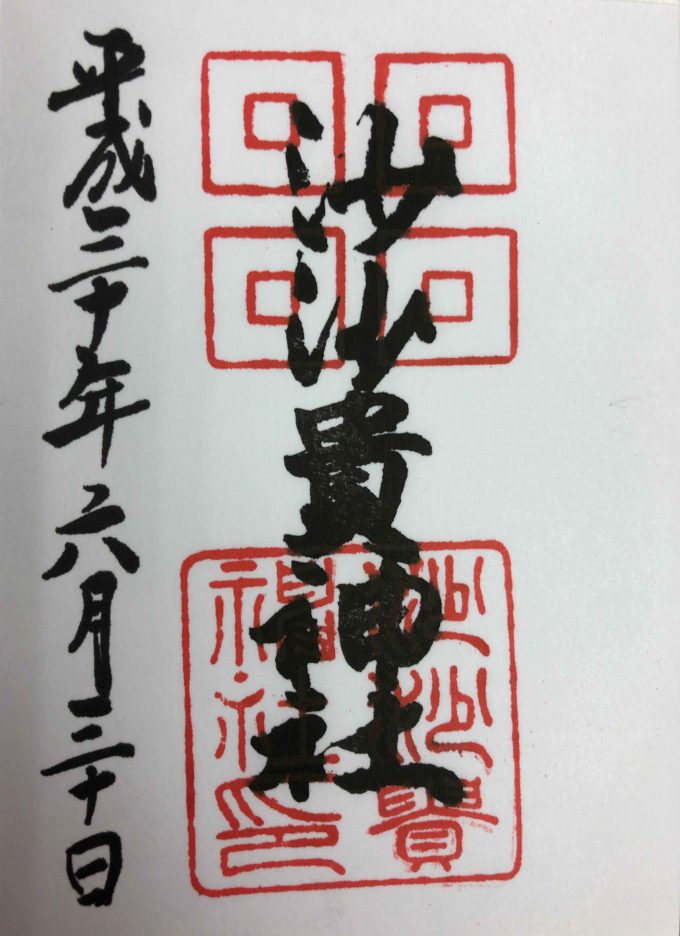 沙沙貴神社
平成三十年六月三十日
沙沙貴
神社印